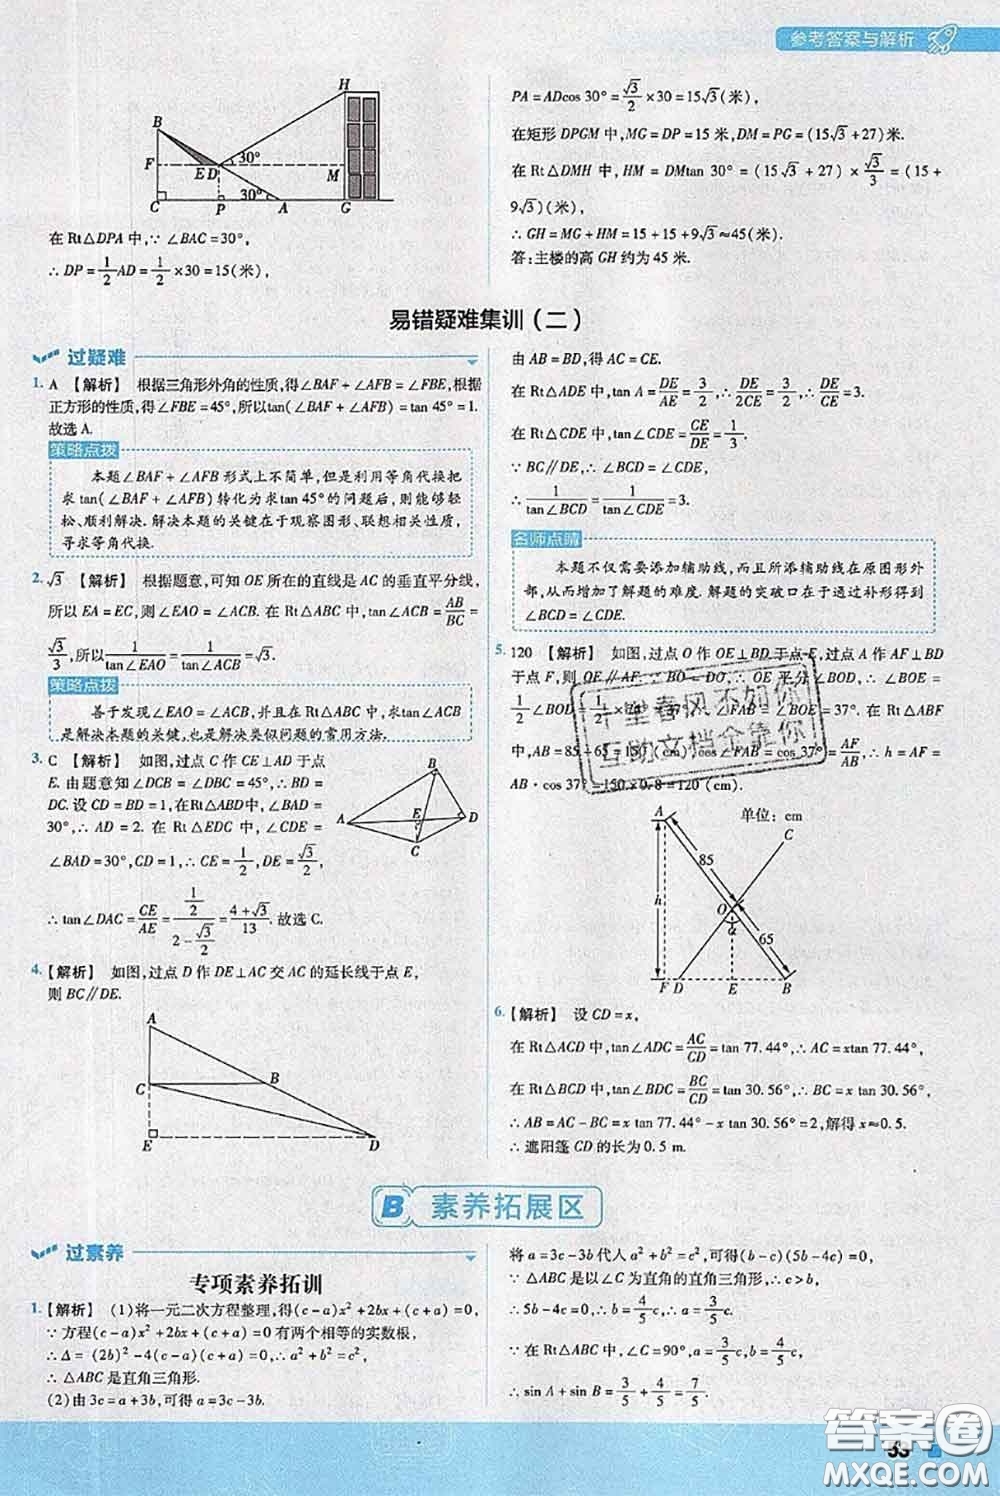 参考答案与解析
H
B
F
E
D
30°
M
30°
C
P
A
G
在 Rt△DPA 中,∵ ∠BAC=30°,
∴ DP=1/2AD=1/2×30=15(米),
PA=ADcos 30°=√3/2×30=15√3(米),
在矩形 DPGM 中,MG=DP=15 米,DM=PG=(15√3+27)米.
在 Rt△DMH 中,HM=DMtan 30°=(15√3+27)×√3/3=(15+
9√3)(米),
∴ GH=MG+HM=15+15+9√3≈45(米).
答:主楼的高 GH 约为 45 米.
易错疑难集训(二)
过疑难
1. A 【解析】 根据三角形外角的性质,得∠BAF+∠AFB=∠FBE,根据
正方形的性质,得∠FBE=45°,所以tan(∠BAF+∠AFB)=tan 45°=1.
故选 A.
策略点拨
本题∠BAF+∠AFB 形式上不简单,但是利用等角代换把
求 tan(∠BAF+∠AFB)转化为求tan 45°的问题后,则能够轻
松、顺利解决.解决本题的关键在于观察图形、联想相关性质,
寻求等角代换.
2. √3 【解析】 根据题意,可知 OE 所在的直线是 AC 的垂直平分线,
所以 EA=EC,则∠EAO=∠ACB. 在 Rt△ABC 中,tan∠ACB=AB/BC=
√3/3,所以1/tan∠EAO=1/tan∠ACB=√3.
策略点拨
善于发现∠EAO=∠ACB,并且在 Rt△ABC 中,求tan∠ACB
是解决本题的关键,也是解决类似问题的常用方法.
3. C 【解析】 如图,过点 C 作 CE⊥AD 于点
E. 由题意知∠DCB=∠DBC=45°,∴ DB=
DC. 设 CD=BD=1,在Rt△ABD中,∠BAD=
30°,∴ AD=2. 在 Rt△EDC 中,∠CDE=
∠BAD=30°,CD=1,∴ CE=1/2,DE=√3/2,
∴ tan∠DAC=CE/AE=(1/2)/(2-√3/2)=(4+√3)/13. 故选 C.
B
A
E
D
C
4. 【解析】 如图,过点 D 作 DE⊥AC 交 AC 的延长线于点 E,
则 BC∥DE.
A
C
B
E
D
由 AB=BD,得 AC=CE.
在 Rt△ADE 中,tan A=DE/AE=3/2,∴ DE/2CE=3/2,∴ DE/CE=3.
在 Rt△CDE 中,tan∠CDE=CE/DE=1/3.
∵ BC∥DE,∴ ∠BCD=∠CDE,
∴ 1/tan∠BCD=1/tan∠CDE=3.
名师点睛
本题不仅需要添加辅助线,而且所添辅助线在原图形外
部,从而增加了解题的难度. 解题的突破口在于通过补形得到
∠BCD=∠CDE.
5. 120 【解析】 如图,过点 O 作 OE⊥BD 于点 E,过点 A 作 AF⊥BD
于点 F,则 OE∥AF. ∵ BO=DO,∴ OE 平分∠BOD,∴ ∠BOE=
1/2∠BOD=1/2×74°=37°,∴ ∠FAB=∠BOE=37°. 在 Rt△ABF
中,AB=85+65=150(cm),cos∠FAB=cos 37°=AF/AB,∴ h=AF=
AB·cos 37°≈150×0.8=120(cm).
千里春风不如你
互助文档全靠你
单位: cm
A
C
85
h
O
α
65
F
D
E
B
6. 【解析】 设 CD=x,
在 Rt△ACD 中,tan∠ADC=AC/CD=tan 77.44°,∴ AC=xtan 77.44°,
在 Rt△BCD 中,tan∠BDC=BC/CD=tan 30.56°,∴ BC=x tan 30.56°,
∴ AB=AC-BC=x tan 77.44°-x tan 30.56°=2,解得 x≈0.5.
∴ 遮阳篷 CD 的长为 0.5 m.
B 素养拓展区
过素养
专项素养拓训
1. 【解析】 (1)将一元二次方程整理,得(c-a)x²+2bx+(c+a)=0,
∵ 方程(c-a)x²+2bx+(c+a)=0 有两个相等的实数根,
∴ Δ=(2b)²-4(c-a)(c+a)=0,∴ a²+b²=c²,
∴ △ABC 是直角三角形.
(2)由 3c=a+3b,可得 a=3c-3b.
将 a=3c-3b代入 a²+b²=c²,可得(b-c)(5b-4c)=0,
∵ △ABC 是以∠C 为直角的直角三角形,∴ c>b,
∴ 5b-4c=0,∴ b=4/5c,∴ a=3/5c.
∵ 在 Rt△ABC 中,∠C=90°,a=3/5c,b=4/5c,
∴ sin A+sin B=3/5+4/5=7/5.
答案圈
MXQE.COM